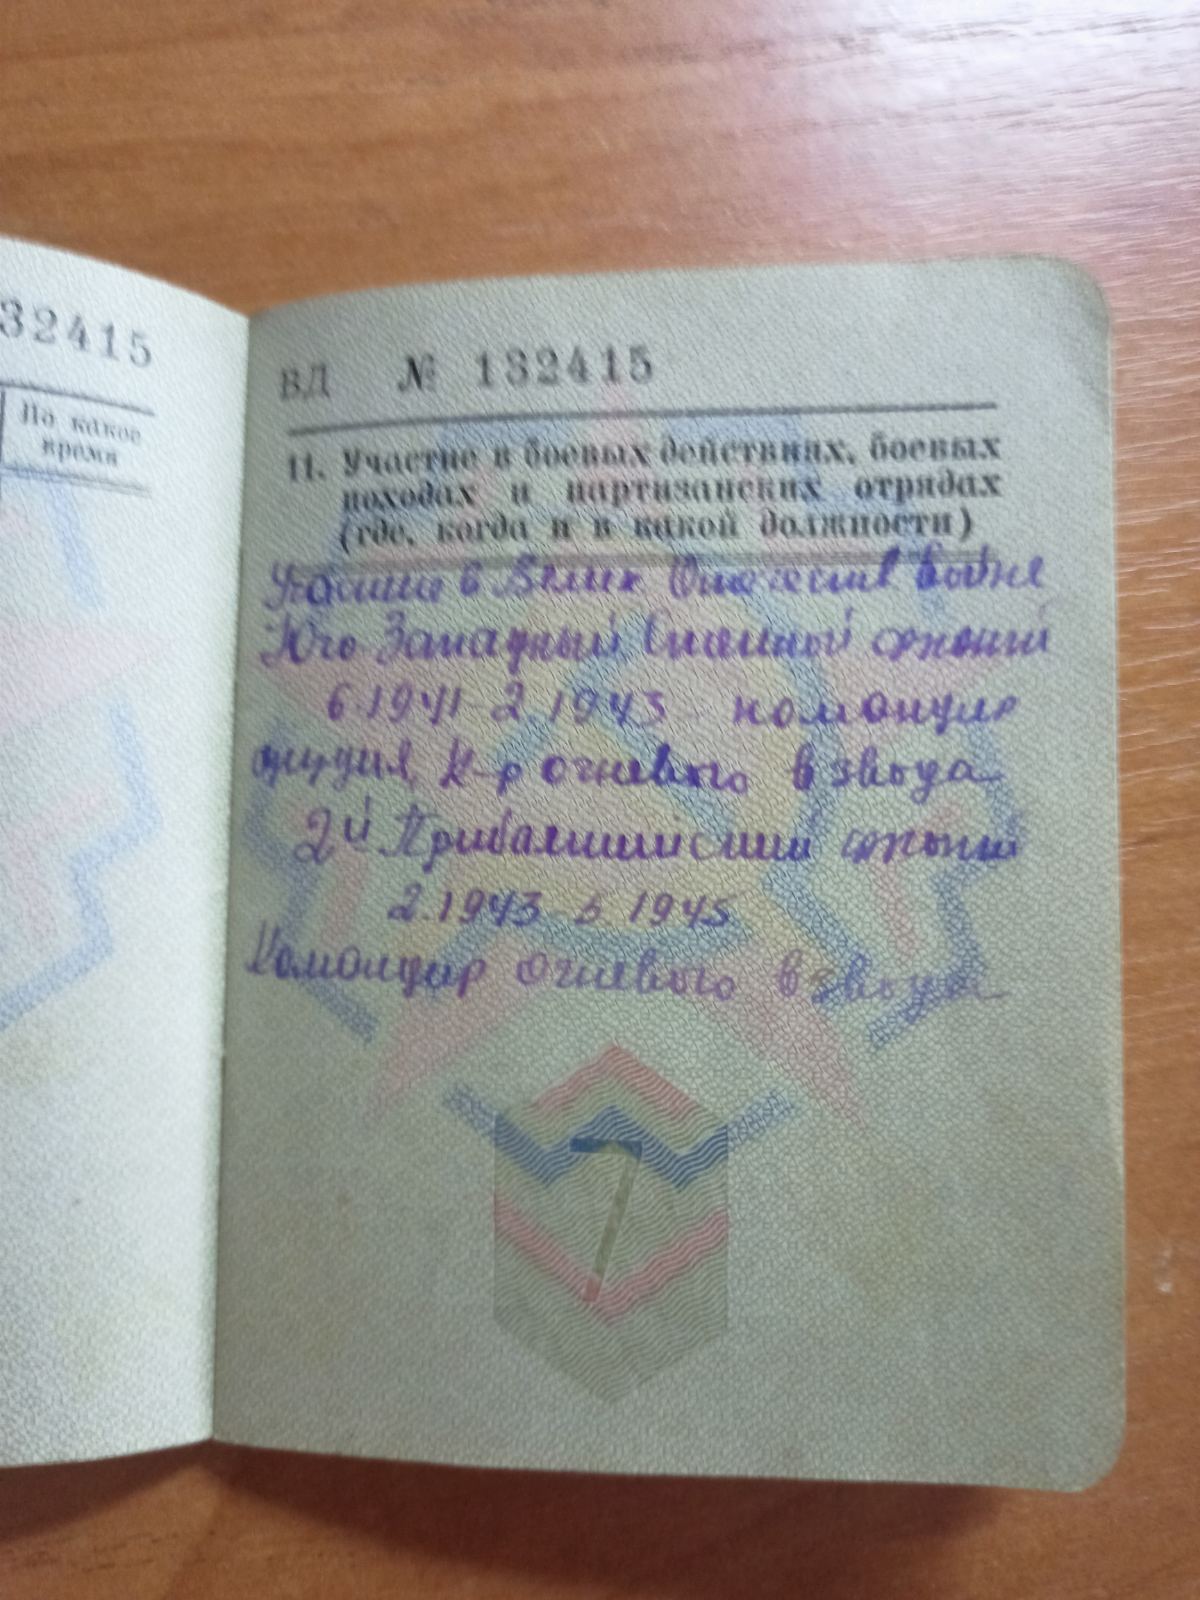 32415
По какое
время
ВД № 132415
11. Участие в боевых действиях, боевых
походах и партизанских отрядах
(где, когда и в какой должности)
Участие в Велик Отечествен войне
Юго Западный Степной фронт
6.1941-2.1943 командир
орудия, К-р огневого взвода
2й Прибалтийский фронт
2.1943 5.1945
Командир огневого взвода
7